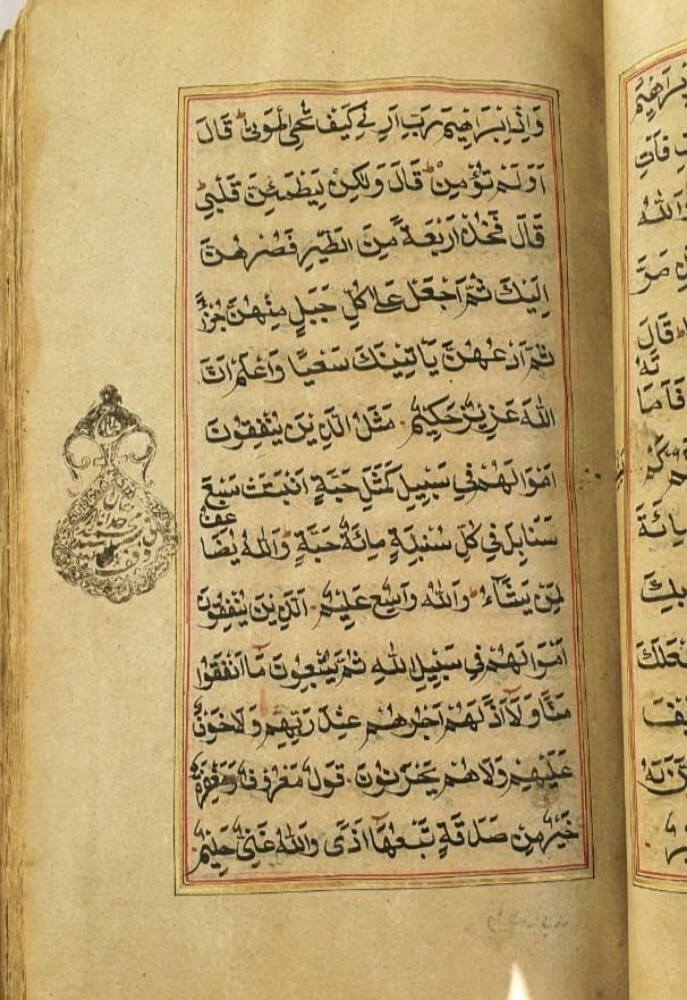 وَاِذْ اِبْرَاهِيمَ رَبِّ اَرِنِي كَيْفَ تُحْيِ الْمَوْتٰى قَالَ
اَوَلَمْ تُؤْمِنْ قَالَ وَلٰكِنْ لِيَطْمَئِنَّ قَلْبِي
قَالَ فَخُذْ اَرْبَعَةً مِنَ الطَّيْرِ فَصُرْهُنَّ
اِلَيْكَ ثُمَّ اجْعَلْ عَلٰى كُلِّ جَبَلٍ مِنْهُنَّ جُزْءًا
ثُمَّ ادْعُهُنَّ يَاْتِينَكَ سَعْيًا وَاعْلَمْ اَنَّ
اللّٰهَ عَزِيزٌ حَكِيمٌ مَثَلُ الَّذِينَ يُنْفِقُونَ
اَمْوَالَهُمْ فِي سَبِيلِ كَمَثَلِ حَبَّةٍ اَنْبَتَتْ سَبْعَ
سَنَابِلَ فِي كُلِّ سُنْبُلَةٍ مِائَةُ حَبَّةٍ وَاللّٰهُ يُضَاعِفُ
لِمَنْ يَشَاءُ وَاللّٰهُ وَاسِعٌ عَلِيمٌ الَّذِينَ يُنْفِقُونَ
اَمْوَالَهُمْ فِي سَبِيلِ اللّٰهِ ثُمَّ يُتْبِعُونَ مَا اَنْفَقُوا
مَنًّا وَلَا اَذًى لَهُمْ اَجْرُهُمْ عِنْدَ رَبِّهِمْ وَلَا خَوْفٌ
عَلَيْهِمْ وَلَا هُمْ يَحْزَنُونَ قَوْلٌ مَعْرُوفٌ وَمَغْفِرَةٌ
خَيْرٌ مِنْ صَدَقَةٍ يَتْبَعُهَا اَذًى وَاللّٰهُ غَنِيٌّ حَلِيمٌ